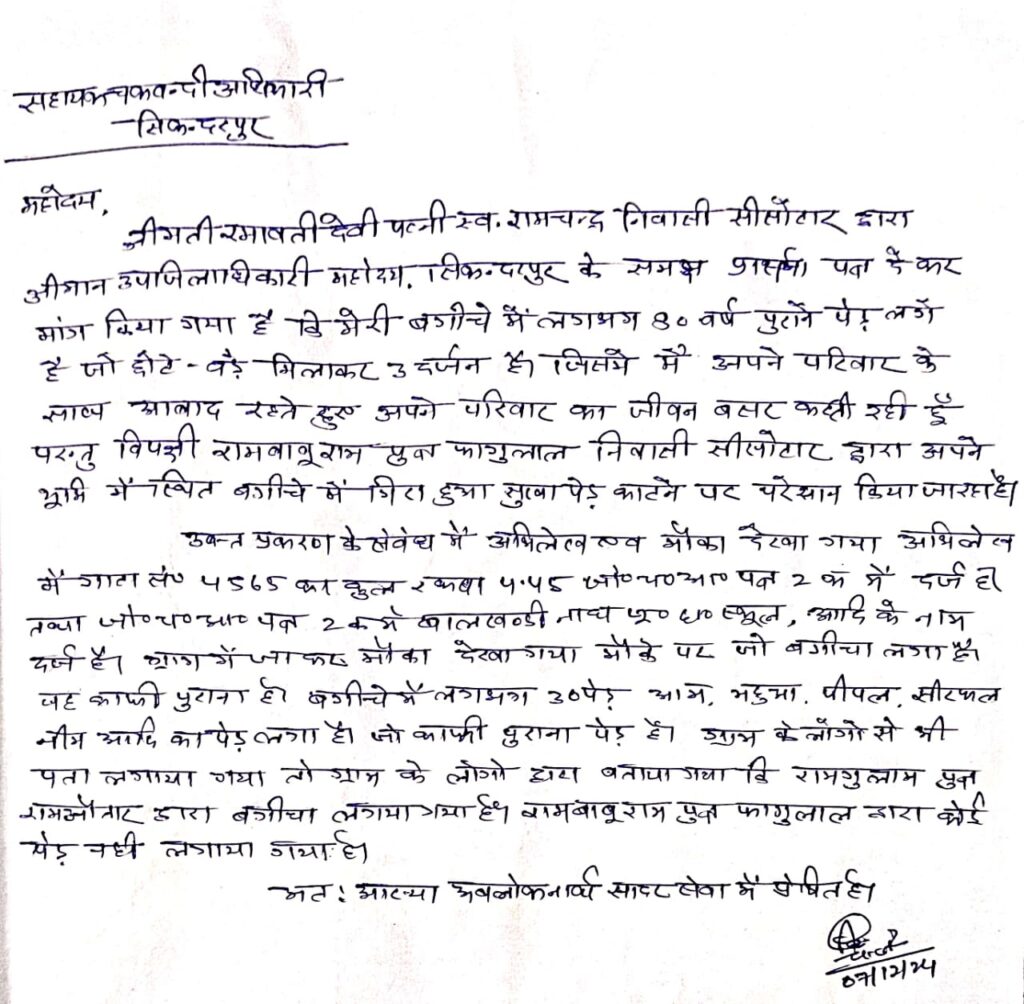 सहायक चकबन्दी अधिकारी
सिकन्दरपुर
महोदय,
श्रीमती रमावती देवी पत्नी स्व. रामचन्द्र निवासी सीसोटार द्वारा
श्रीमान उपजिलाधिकारी महोदय, सिकन्दरपुर के समक्ष प्रार्थना पत्र देकर
मांग किया गया है कि मेरी बगीचे में लगभग 80 वर्ष पुराने पेड़ लगे
है जो छोटे-बड़े मिलाकर 3 दर्जन है। जिसमें मैं अपने परिवार के
साथ आबाद रहते हुए अपने परिवार का जीवन बसर करती रही हूँ
परन्तु विपक्षी रामबाबू राम पुत्र फागुलाल निवासी सीसोटार द्वारा अपने
भूमि में स्थित बगीचे में गिरा हुआ सुखा पेड़ काटने पर परेसान किया जा रहा है।
उक्त प्रकरण के संबंध में अभिलेख एवं मौका देखा गया अभिलेख
में गाटा सं० 4565 का कुल रकबा 4.45 जो०च०आ० पत्र 2 क में दर्ज है।
तथा जो०च०आ० पत्र 2 क में बालखण्डी नाथ पू० मा० स्कूल, आदि के नाम
दर्ज है। ग्राम में जाकर मौका देखा गया मौके पर जो बगीचा लगा है।
वह काफी पुराना है। बगीचे में लगभग 30 पेड़ आम, महुआ, पीपल, सीरफल
नीम आदि का पेड़ लगा है। जो काफी पुराना पेड़ है। ग्राम के लोंगो से भी
पता लगाया गया तो ग्राम के लोगो द्वारा बताया गया कि रामगुलाम पुत्र
रामऔतार द्वारा बगीचा लगाया गया है। रामबाबू राम पुत्र फागुलाल द्वारा कोई
पेड़ नही लगाया गया है।
अत: आख्या अवलोकनार्थ सादर सेवा में प्रेषित है।
07/12/24